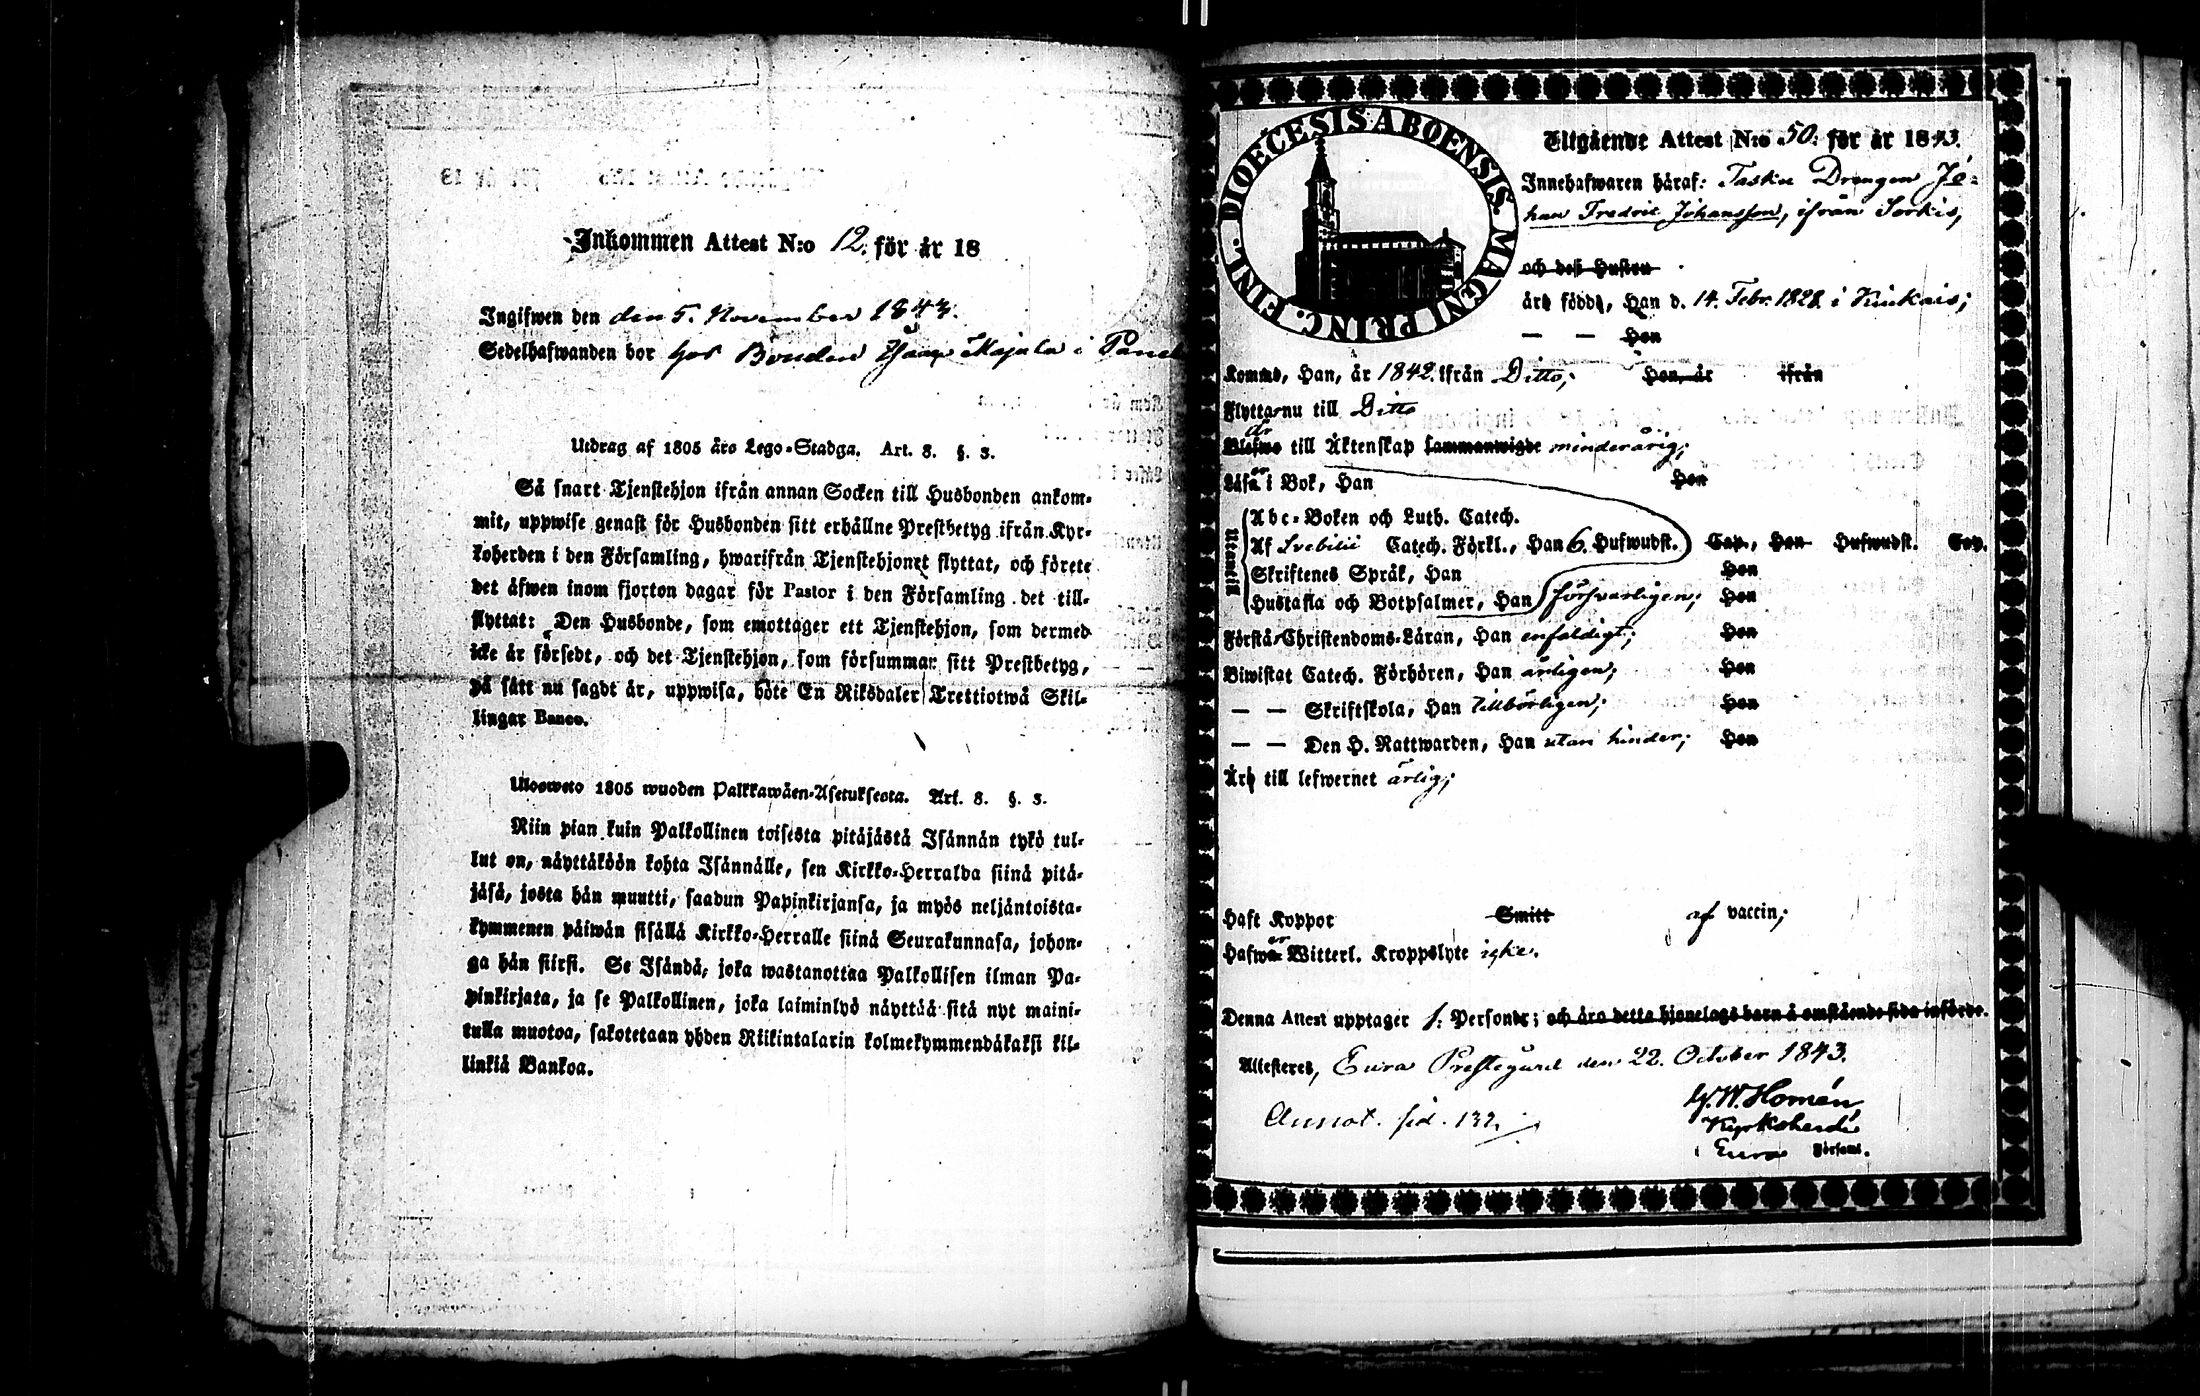 Inkommen Attest N:o 12. för år 18
Ingifwen den den 5. November 1843.
Sedelhafwanden bor hos Bonden Isaac Majala i Panel
Utdrag af 1805 års Lego-Stadga. Art. 8. §. 3.
Så snart Tjenstehjon ifrån annan Socken till Husbonden ankom-
mit, uppwise genast för Husbonden sitt erhållne Prestbetyg ifrån Kyr-
koherden i den Församling, hwarifrån Tjenstehjonet flyttat, och förete
det äfwen inom fjorton dagar för Pastor i den Församling det till-
flyttat: Den Husbonde, som emottager ett Tjenstehjon, som dermed
icke är försedt, och det Tjenstehjon, som försummar sitt Prestbetyg,
på sätt nu sagdt är, uppwisa, böte En Riksdaler Trettiotwå Skil-
lingar Banco.
Ulosweto 1805 wuoden Palkkawäen-Asetuksesta. Art. 8. §. 3.
Niin pian kuin Palkollinen toisesta pitäjästä Isännän tykö tul-
lut on, näyttäköön kohta Isännälle, sen Kirkko-Herralda siinä pitä-
jäsä, josta hän muutti, saadun Papinkirjansa, ja myös neljäntoista-
kymmenen päiwän sisällä Kirkko-Herralle siinä Seurakunnasa, johon-
ga hän siirsi. Se Isändä, joka wastanottaa Palkollisen ilman Pa-
pinkirjata, ja se Palkollinen, joka laiminlyö näyttää sitä nyt maini-
tulla muotoa, sakotetaan yhden Riikintalarin kolmekymmendäkaksi kil-
linkiä Bankoa.
DIOECESIS ABOENSIS. MAGNI PRINC. FINL.
Utgående Attest N:o 50. för år 1843.
Innehafwaren häraf: Tasku Drengen Jo-
han Fredric Johansson, ifrån Sorkis,
och deß Hustru
äro födde, Han d. 14. Febr. 1828 i Kiukais;
— — Hon
Komme, Han, år 1842. ifrån Ditto; Hon, år ifrån
Flytta nu till Ditto
är
Blefwo till Äktenskap sammanwigde minderårig;
er
Läsa i Bok, Han Hon
Utantill
Abc-Boken och Luth. Catech.
Af Svebilii Catech. Förkl., Han 6. Hufwudst. Cap., Hon Hufwudst. Cap.
Skriftenes Språk, Han Hon
Hustafla och Botpsalmer, Han försvarligen; Hon
Förstå Christendoms-Läran, Han enfaldigt; Hon
Biwistat Catech. Förhören, Han årligen; Hon
— — Skriftskola, Han tillbörligen; Hon
— — Den H. Nattwarden, Han utan hinder; Hon
Äro till lefwernet ärlig;
Haft Koppor Smitt af vaccin;
er
Hafwa Witterl. Kroppslyte icke.
Denna Attest upptager 1: Personer; och äro detta hjonelags barn å omstående sida införde.
Attesteres, Eura Prestegård den 22. October 1843.
W. Homén,
Annot. sid. 132.
Kyrkoherde
i Eura Församl.